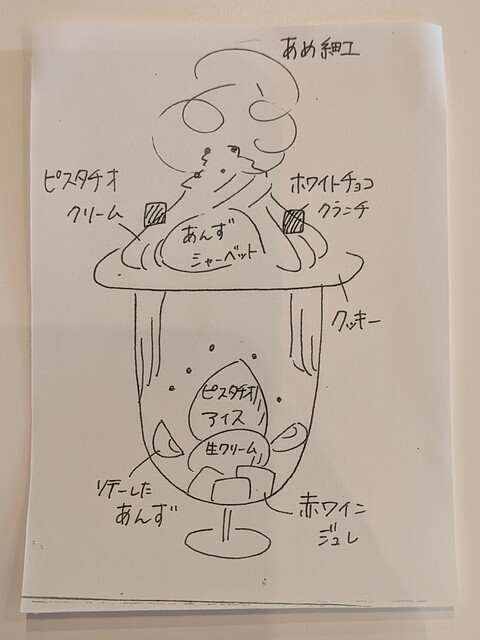 あめ細工
ピスタチオ
クリーム
ホワイトチョコ
クランチ
あんず
シャーベット
クッキー
ピスタチオ
アイス
生クリーム
ソテーした
あんず
赤ワイン
ジュレ